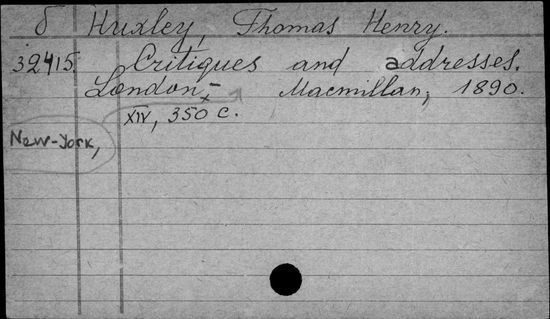 б Huxley, Thomas Henry.
32415. Critiques and addresses.
London, - Macmillan, 1890.
XIV, 350 c.
New-York,